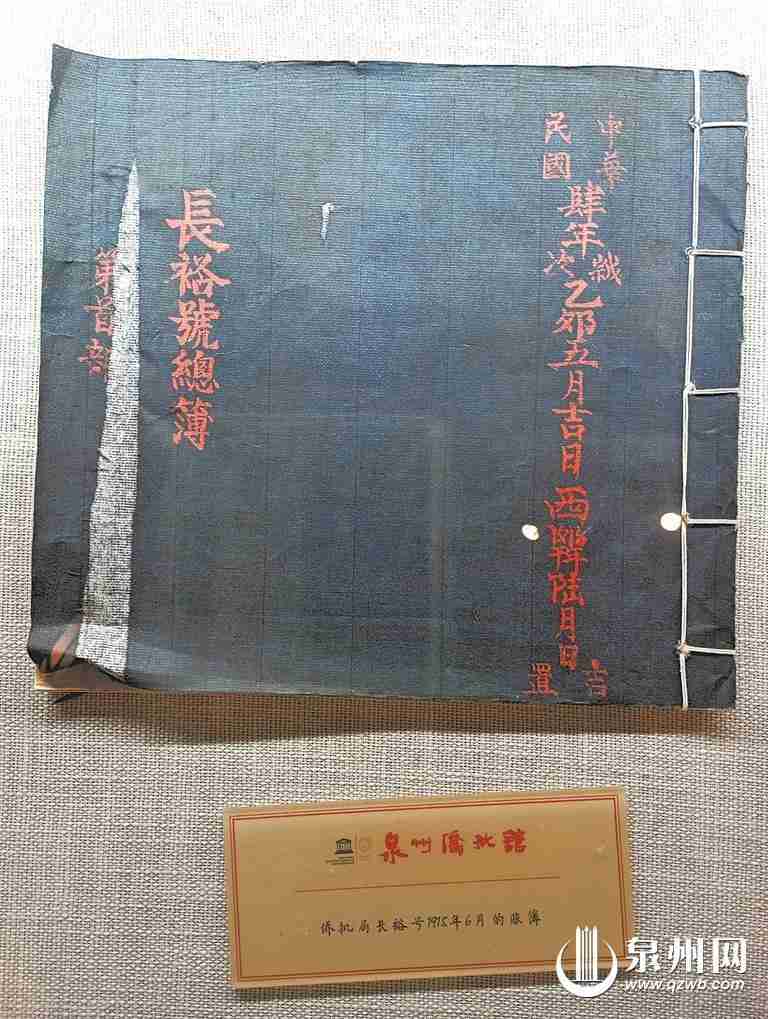 中華
民國
肆年
歲次
乙卯五月吉日西
陸月日
吉
置
長裕號總簿
第首部
泉州僑批館
侨批局长裕号1915年6月的账簿
泉州网
www.qzwb.com